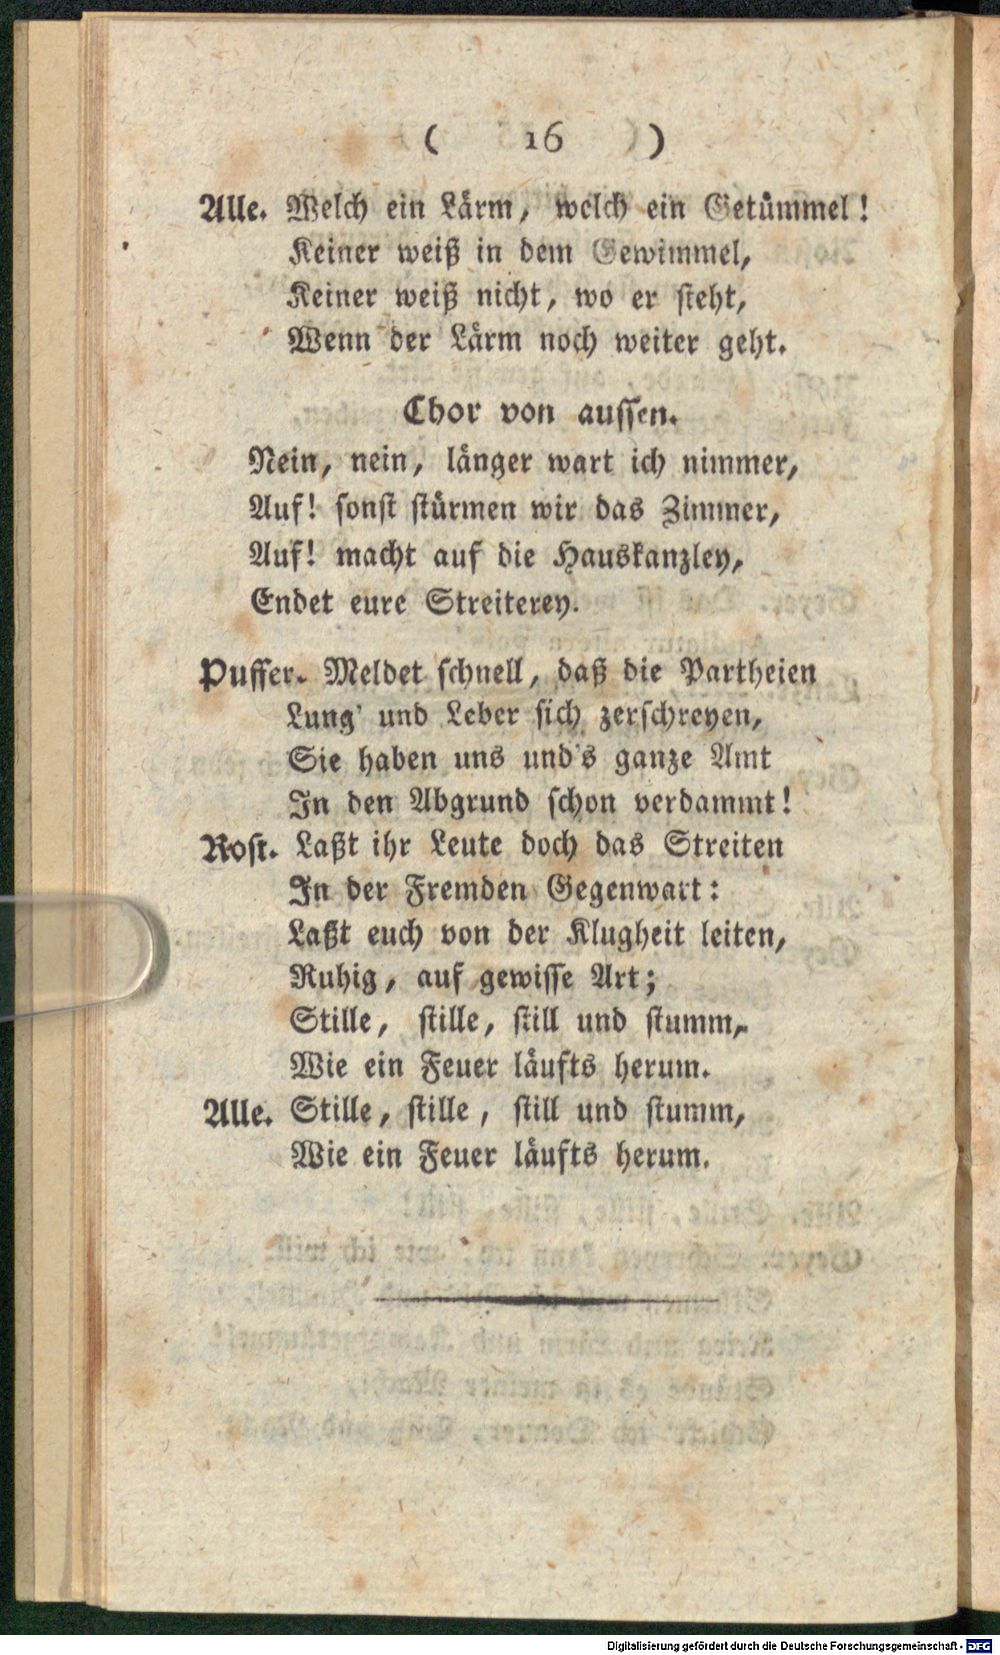 ( 16 )
Alle. Welch ein Lärm, welch ein Getümmel!
Keiner weiß in dem Gewimmel,
Keiner weiß nicht, wo er steht,
Wenn der Lärm noch weiter geht.
Chor von aussen.
Nein, nein, länger wart ich nimmer,
Auf! sonst stürmen wir das Zimmer,
Auf! macht auf die Hauskanzley,
Endet eure Streiterey.
Puffer. Meldet schnell, daß die Partheien
Lung' und Leber sich zerschreyen,
Sie haben uns und's ganze Amt
In den Abgrund schon verdammt!
Rost. Laßt ihr Leute doch das Streiten
In der Fremden Gegenwart:
Laßt euch von der Klugheit leiten,
Ruhig, auf gewisse Art;
Stille, stille, still und stumm,
Wie ein Feuer läufts herum.
Alle. Stille, stille, still und stumm,
Wie ein Feuer läufts herum.
Digitalisierung gefördert durch die Deutsche Forschungsgemeinschaft - DFG